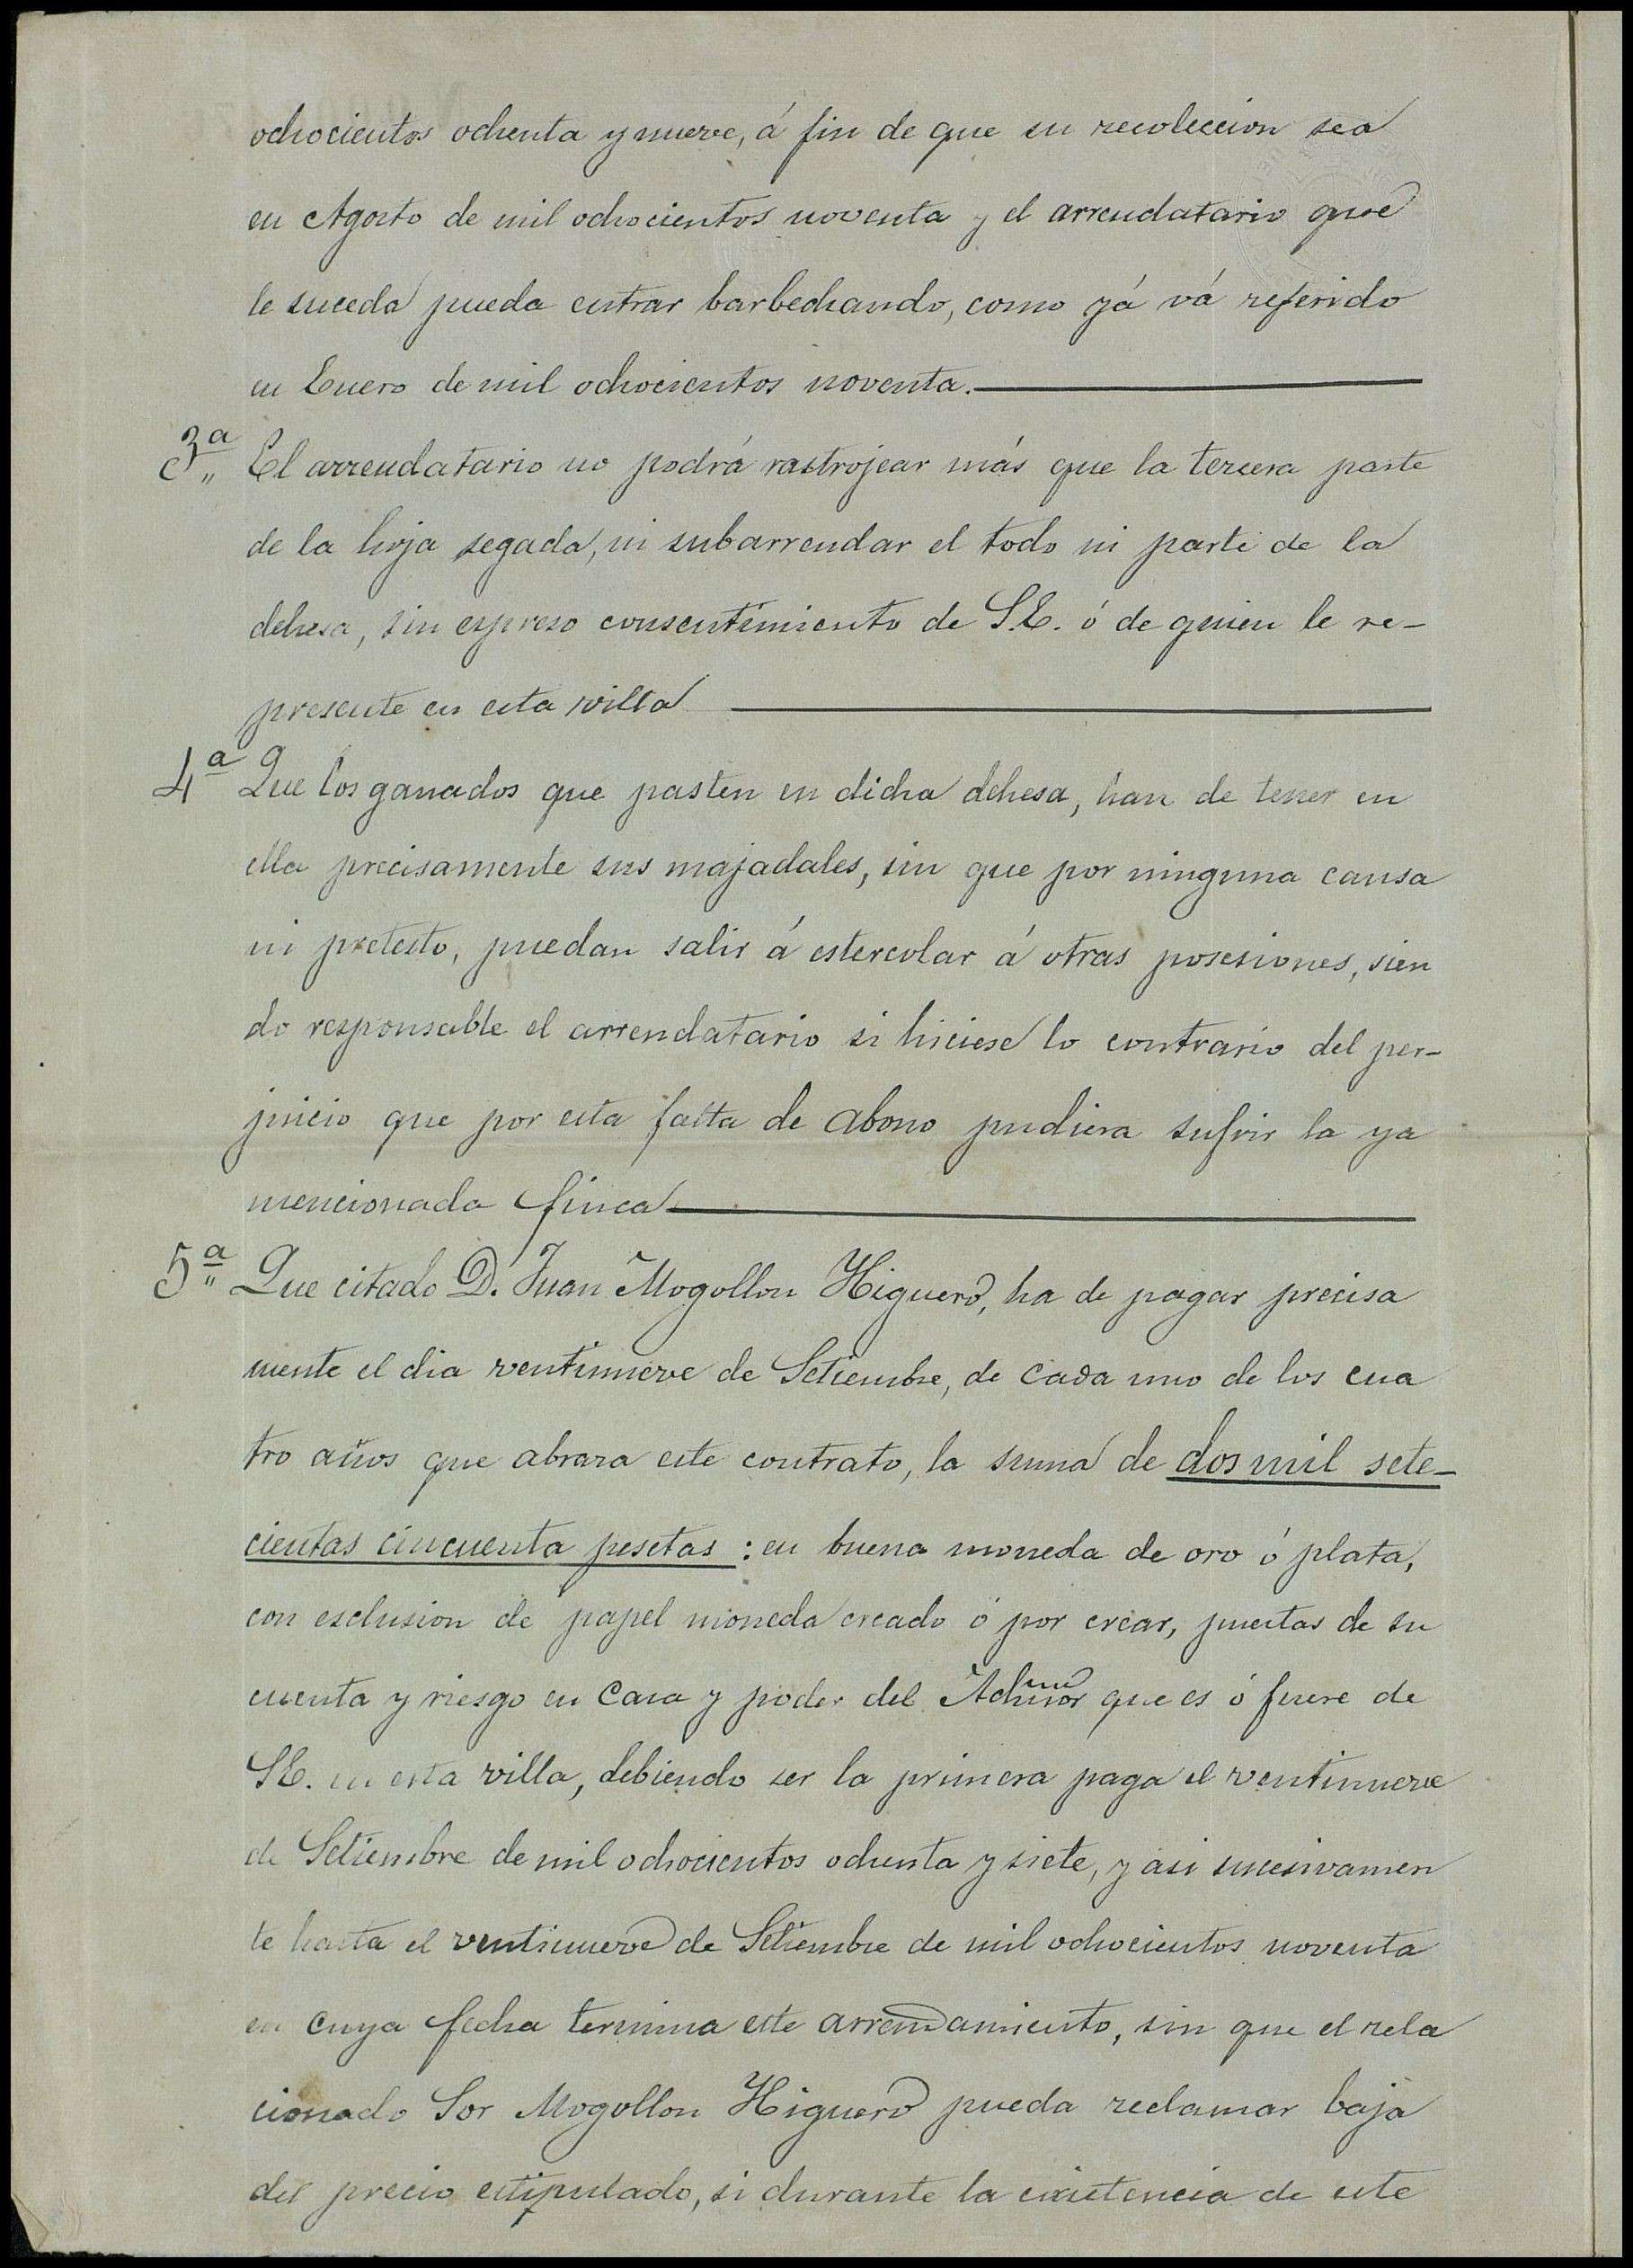 ochocientos ochenta y nueve, á fin de que su recoleccion sea
en Agosto de mil ochocientos noventa y el arrendatario que
le suceda pueda entrar barbechando, como yá vá referido
en Enero de mil ochocientos noventa.
3ª El arrendatario no podrá rastrojear más que la tercera parte
de la hoja segada, ni subarrendar el todo ni parte de la
dehesa, sin espreso consentimiento de S.E. ó de quien le re-
presente en esta villa
4ª Que los ganados que pasten en dicha dehesa, han de tener en
ella precisamente sus majadales, sin que por ninguna causa
ni pretesto, puedan salir á estercolar á otras posesiones, sien
do responsable el arrendatario si hiciese lo contrario del per-
juicio que por esta falta de abono pudiera sufrir la ya
mencionada finca
5ª Que citado D. Juan Mogollon Higuero, ha de pagar precisa
mente el dia ventinueve de Setiembre, de cada uno de los cua
tro años que abraza este contrato, la suma de dos mil sete-
cientas cincuenta pesetas: en buena moneda de oro ó plata,
con esclusion de papel moneda creado ó por crear, puestas de su
cuenta y riesgo en casa y poder del Admor que es ó fuere de
S.E. en esta villa, debiendo ser la primera paga el ventinueve
de Setiembre de mil ochocientos ochenta y siete, y asi sucesivamen
te hasta el ventinueve de Setiembre de mil ochocientos noventa
en cuya fecha termina este arrendamiento, sin que el rela
cionado Sor Mogollon Higuero pueda reclamar baja
del precio estipulado, si durante la existencia de este